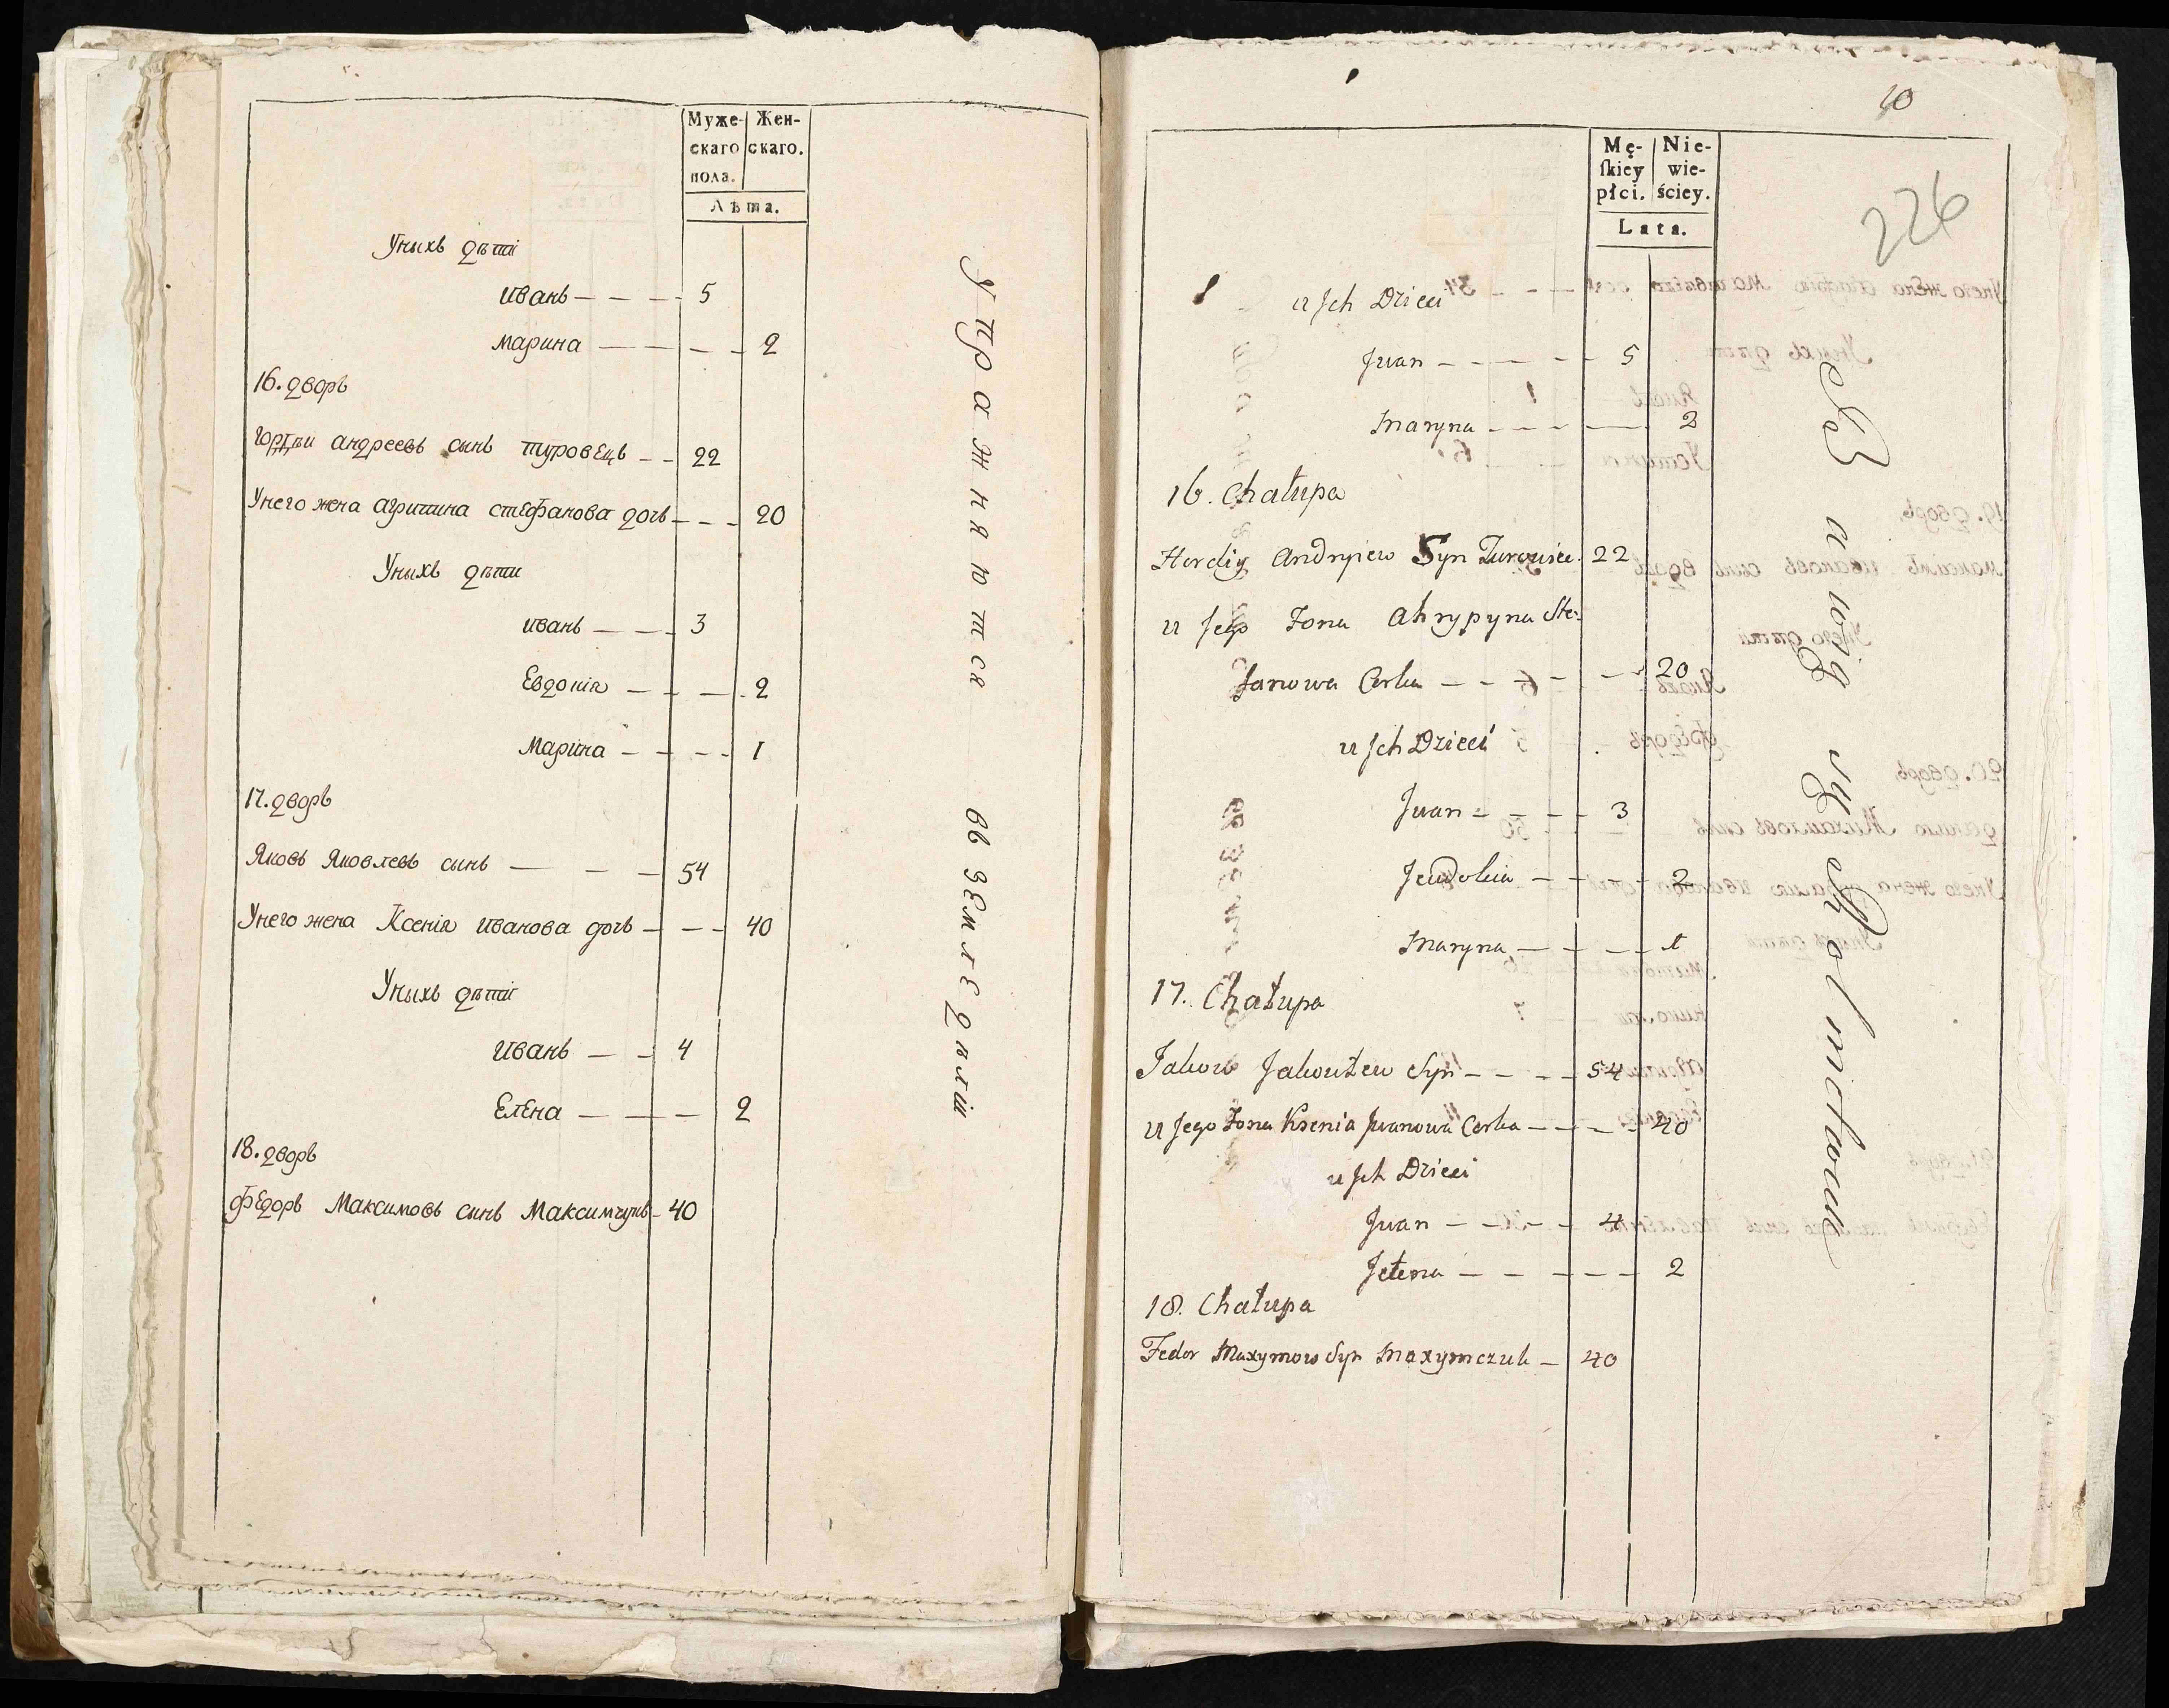 Муже-
скаго
пола.
Жен-
скаго.
Лѣта.
Уныхъ дѣти
иванъ 5
марина 2
16. дворъ
андреевъ сынъ туровецъ 22
Унего жена агрипина стефанова дочь 20
Уныхъ дѣти
иванъ 3
Евдокія 2
Марина 1
17. дворъ
Яковъ Яковлевъ сынъ 54
Унего жена Ксенія иванова дочь 40
Уныхъ дѣти
иванъ 4
Елена 2
18. дворъ
Федоръ Максимовъ сынъ Максимчукъ 40
Упражняются въ земледѣлiи
10
226
Mę-
ſkiey
płci.
Nie-
wie-
ściey.
Lata.
u Jch Dzieci
Jwan 5
Maryna 2
16. Chałupa
Hordiy Andryiew Syn Turowiec 22
u Jego Żona Ahrypyna Ste-
fanowa Corka 20
u Jch Dzieci
Jwan 3
Jewdokia 2
Maryna 1
17. Chałupa
Jakow Jakowlew Syn 54
u Jego Żona Ksenia Jwanowa Corka 40
u Jch Dzieci
Jwan 4
Jełena 2
18. Chałupa
Fedor Maxymow Syn Maxymczuk 40
Rolnictwie